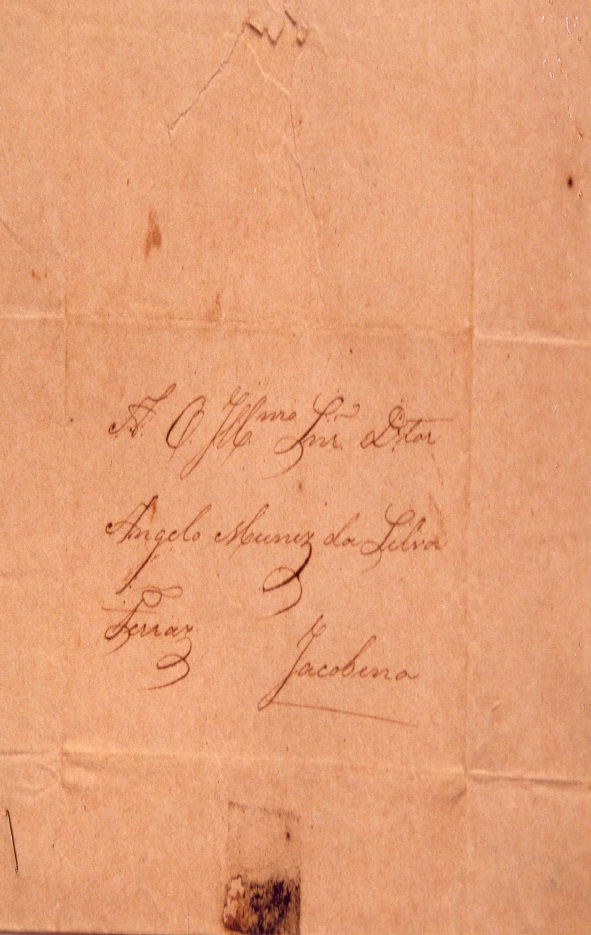 A. O. Illmo Snr. Dtor
Angelo Muniz da Silva
Ferraz
Jacobina